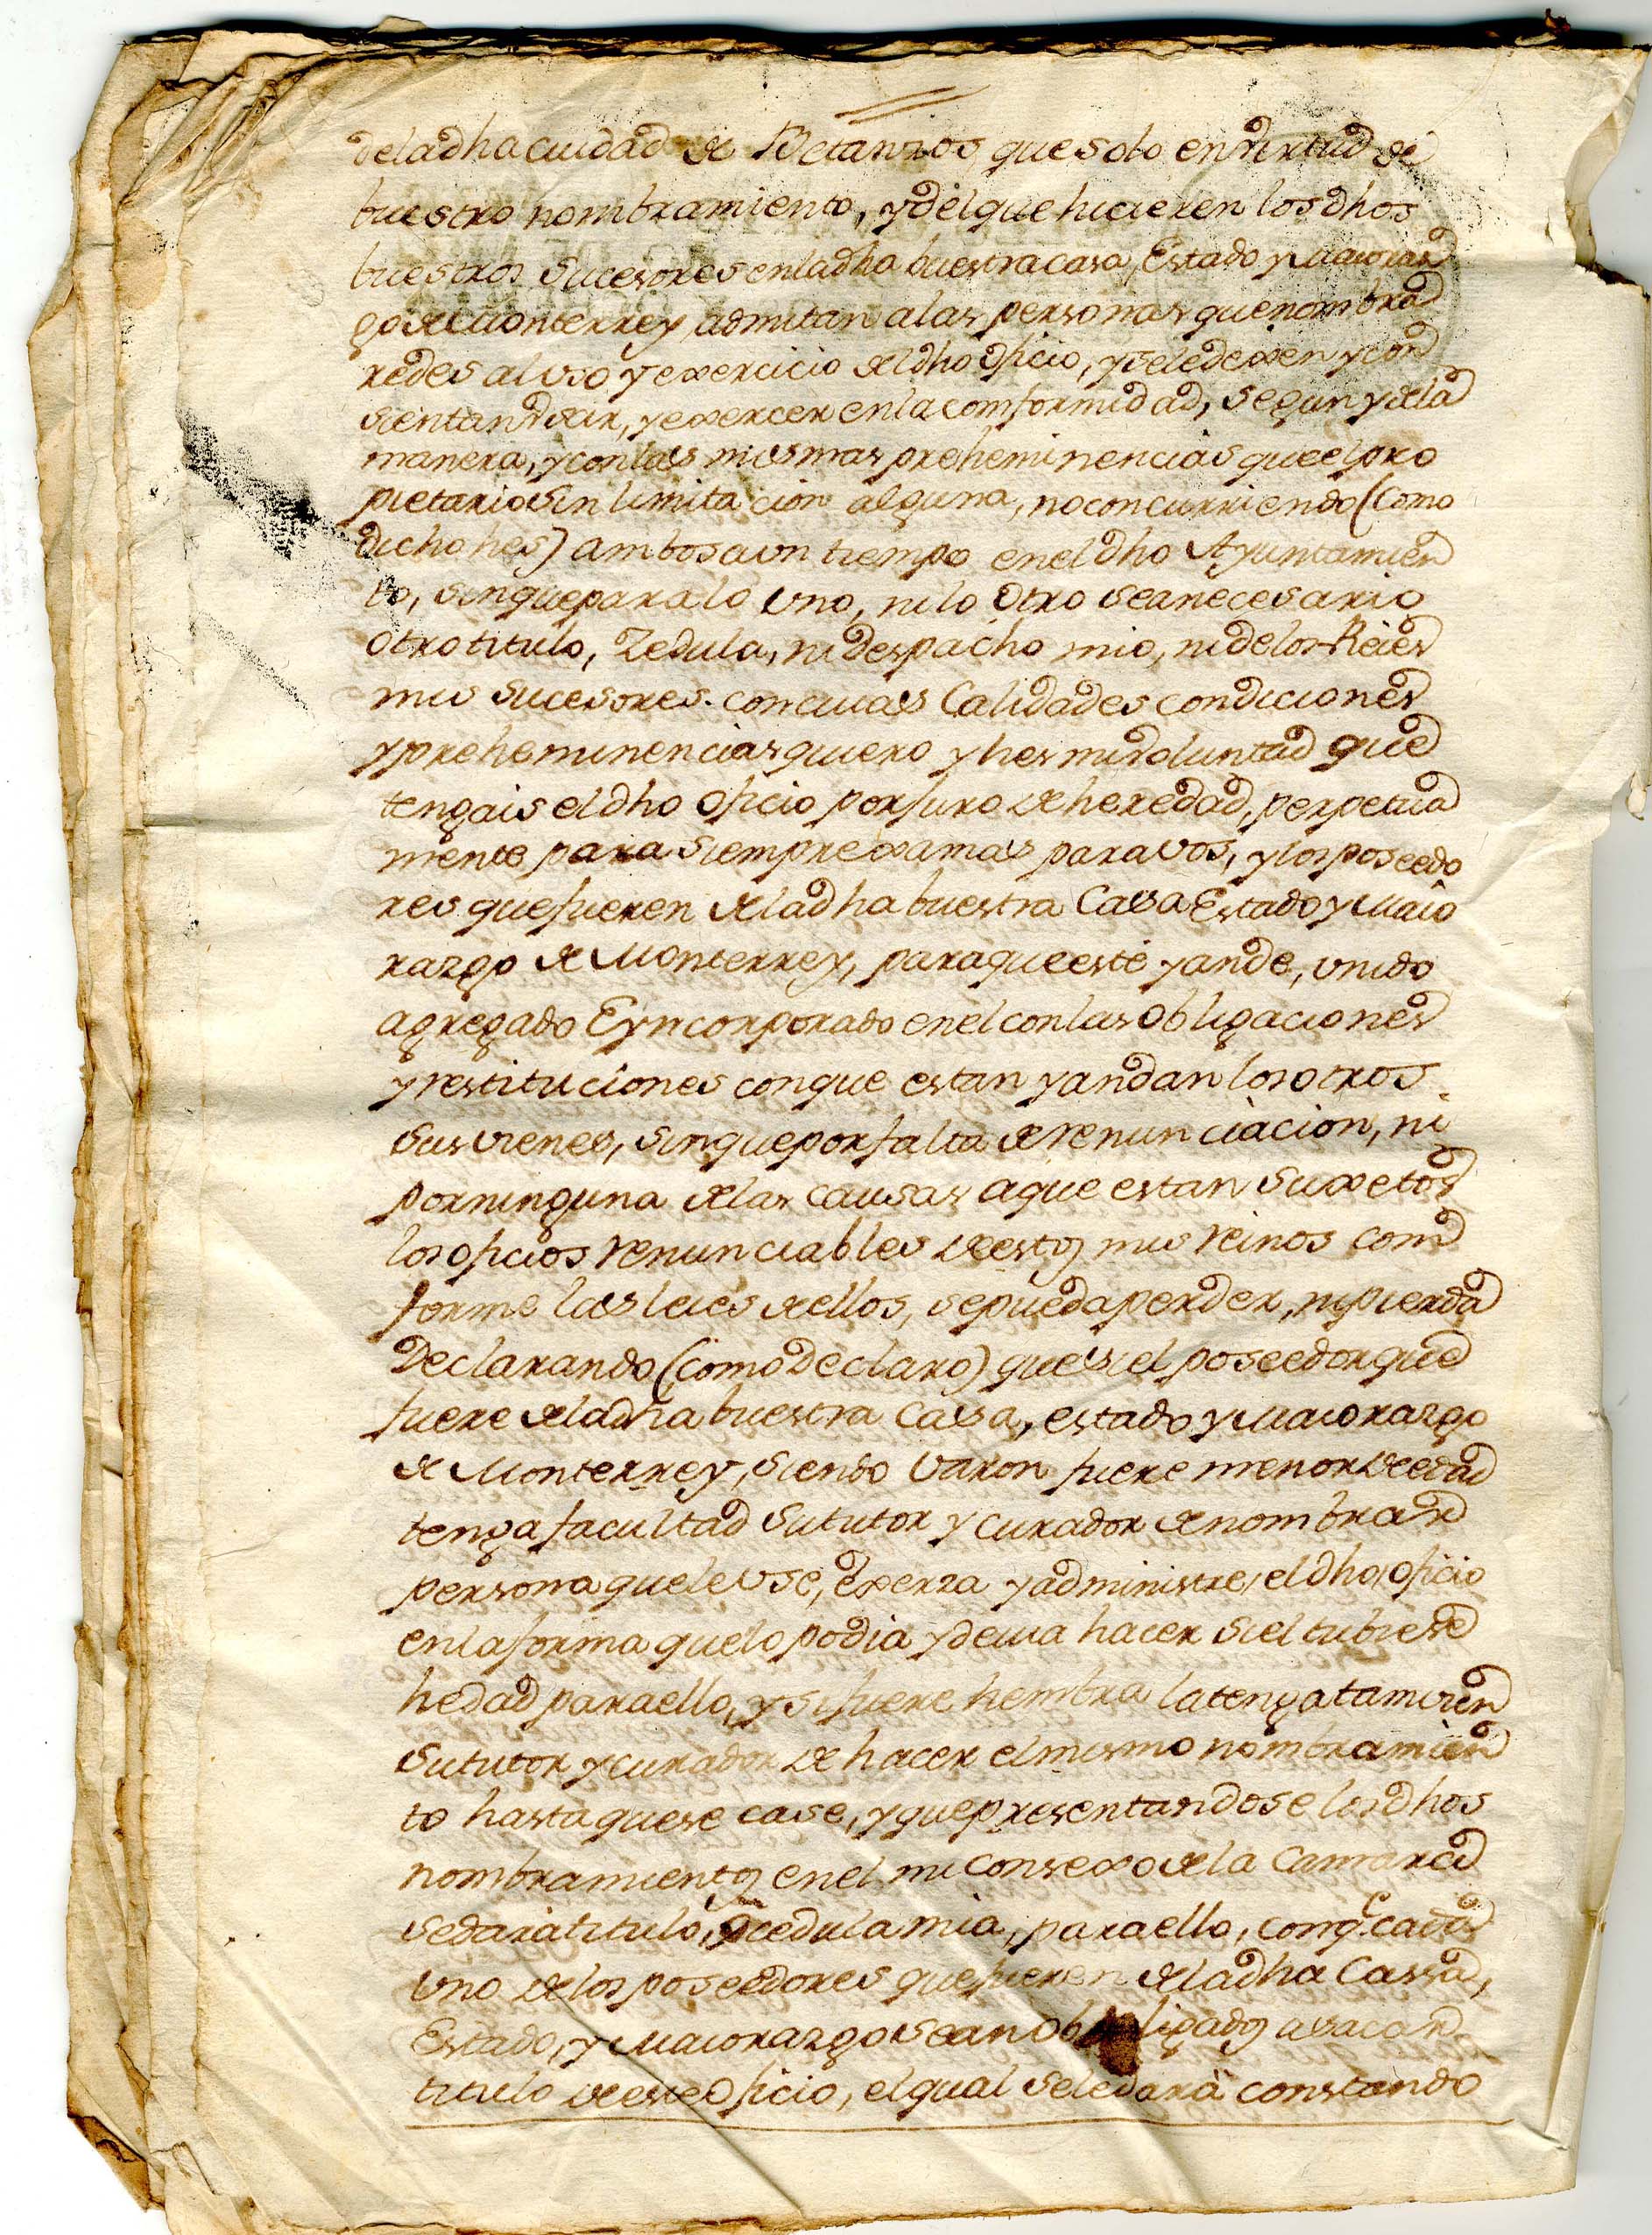 dela dha ciudad de Betanzos que solo en virtud de
buestro nombramiento, y del que hicieren los dhos
buestros Sucesores en la dha buestra casa, Estado y Maioraz
go de Monterrey admitan a las personas que nombra
redes al uso y exercicio del dho oficio, y se le dexen y con
sientan usar, y exercer en la comformidad, segun y de la
manera, y con las mismas preheminencias que el pro
pietario sin limitacion alguna, no concurriendo (como
dicho hes) ambos a un tiempo en el dho Ayuntamien
to, sin que para lo uno, ni lo otro sea necesario
otro titulo, Zedula, ni despacho mio, ni de los Reies
mis sucesores. con cuias Calidades condiciones
y preheminencias quiero y hes mi voluntad que
tengais el dho oficio por juro de heredad, perpetua
mente para siempre xamas para vos, y los poseedo
res que fueren de la dha buestra Casa Estado y Maio
razgo de Monterrey, para que esté y ande, unido
agregado E yncorporado en el con las obligaciones
y restituciones con que estan y andan los otros
sus vienes, sin que por falta de renunciacion, ni
por ninguna de las causas a que estan suxetos
los oficios renunciables de estos mis reinos com
forme las leies de ellos, se pueda perder, ni pierda
Declarando (como Declaro) que si el poseedor que
fuere de la dha buestra Casa, estado y Maiorazgo
de Monterrey, siendo varon fuere menor de edad
tenga facultad su tutor y curador de nombrar
persona que le use, Exerza y administre, el dho oficio
en la forma que lo podia y devia hacer si el tubiese
hedad para ello, y si fuere hembra la tenga tamvien
su tutor y curador de hacer el mismo nombramien
to hasta que se case, y que presentandose los dhos
nombramientos en el mi Consexo de la Camara
se dara titulo, o cedula mia, para ello, con q.e cada
uno de los poseedores que fueren de la dha Cassa,
Estado, y Maiorazgo sean Obligados a sacar
titulo de este Oficio, el qual se le dará constando